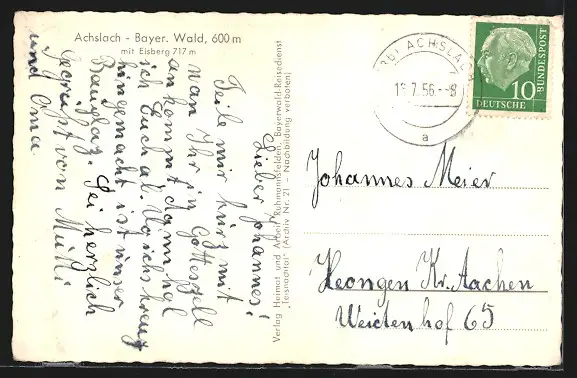 Achslach - Bayer. Wald, 600 m
mit Eisberg 717 m
Lieber Johannes!
Teile mir kurz mit
wan Ihr in Gotteszell
ankommt dann hol
ich Euch ab. Wo ichs kreuz
hingemacht ist unser
Hauplaz. Sei herzlich
gegrüßt von Mutti
und Oma.
Verlag Heimat und Arbeit, Ruhmannsfelden, Bayerwald-Reisedienst
„Teisnachtal“ (Archiv Nr. 21 - Nachbildung verboten)
ACHSLACH
7.56.-8
a
DEUTSCHE
BUNDESPOST
10
Johannes Meier
Heongen Kr. Aachen
Weiden hof 65